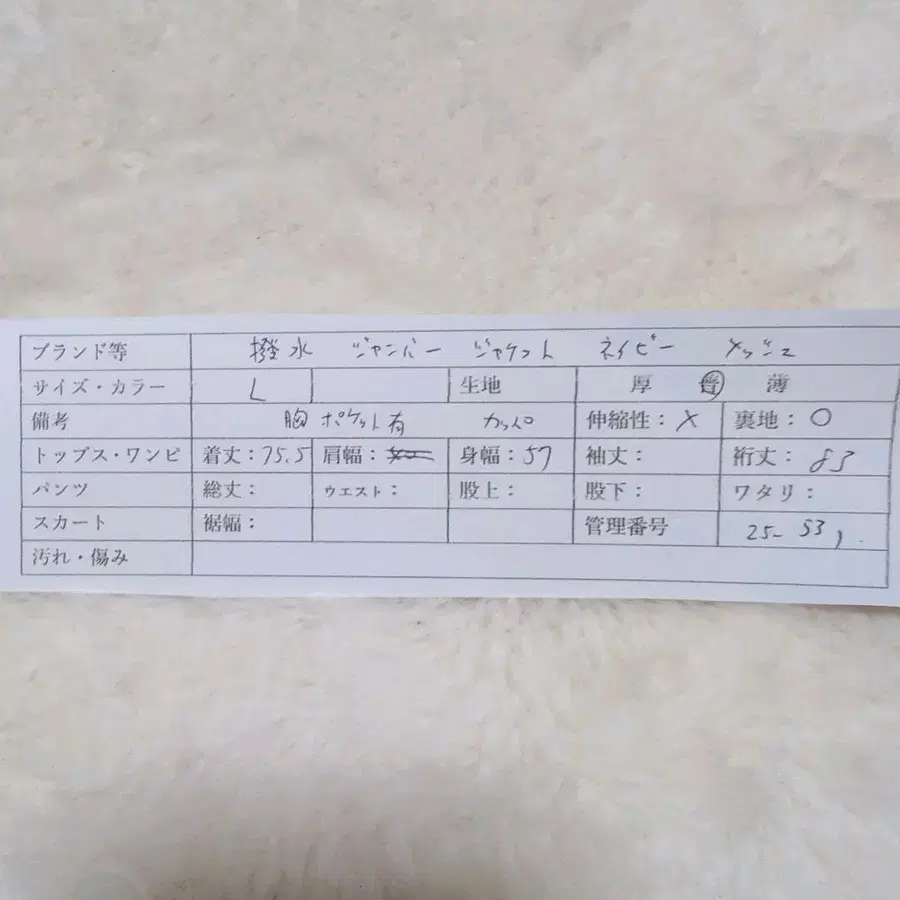 ブランド等 撥水 ジャンバー ジャケット ネイビー メッシュ
サイズ・カラー L 生地 厚 普 薄
備考 胸ポケット有 カッパ 伸縮性：× 裏地：○
トップス・ワンピ 着丈：75.5 肩幅： 身幅：57 袖丈： 裄丈：83
パンツ 総丈： ウエスト： 股上： 股下： ワタリ：
スカート 裾幅： 管理番号 25-531
汚れ・傷み